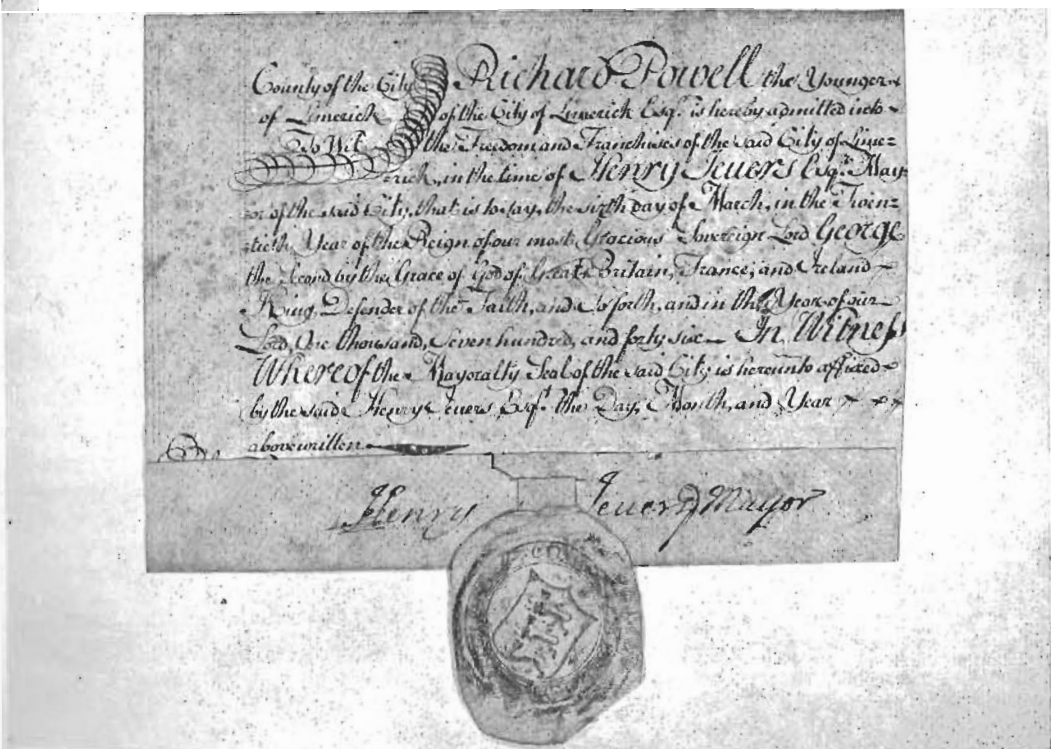 County of the City Richard Powell the Younger
of Limerick of the City of Limerick Esqr. is hereby admitted into
To Wit the Freedom and Franchises of the said City of Lime=
=rick, in the time of Henry Jeuers Esqr. May=
=or of the said City, that is to say, the sixth day of March, in the Twen=
=tieth Year of the Reign of our most Gracious Sovereign Lord George
the Second by the Grace of God of Great Britain, France, and Ireland
King, Defender of the Faith, and so forth, and in the Year of our
Lord, One thousand, Seven hundred, and forty six In Witness
Whereof the Mayoralty Seal of the said City is hereunto affixed
by the said Henry Jeuers Esqr. the Day, Month, and Year
abovewritten
Henry Jeuers Mayor